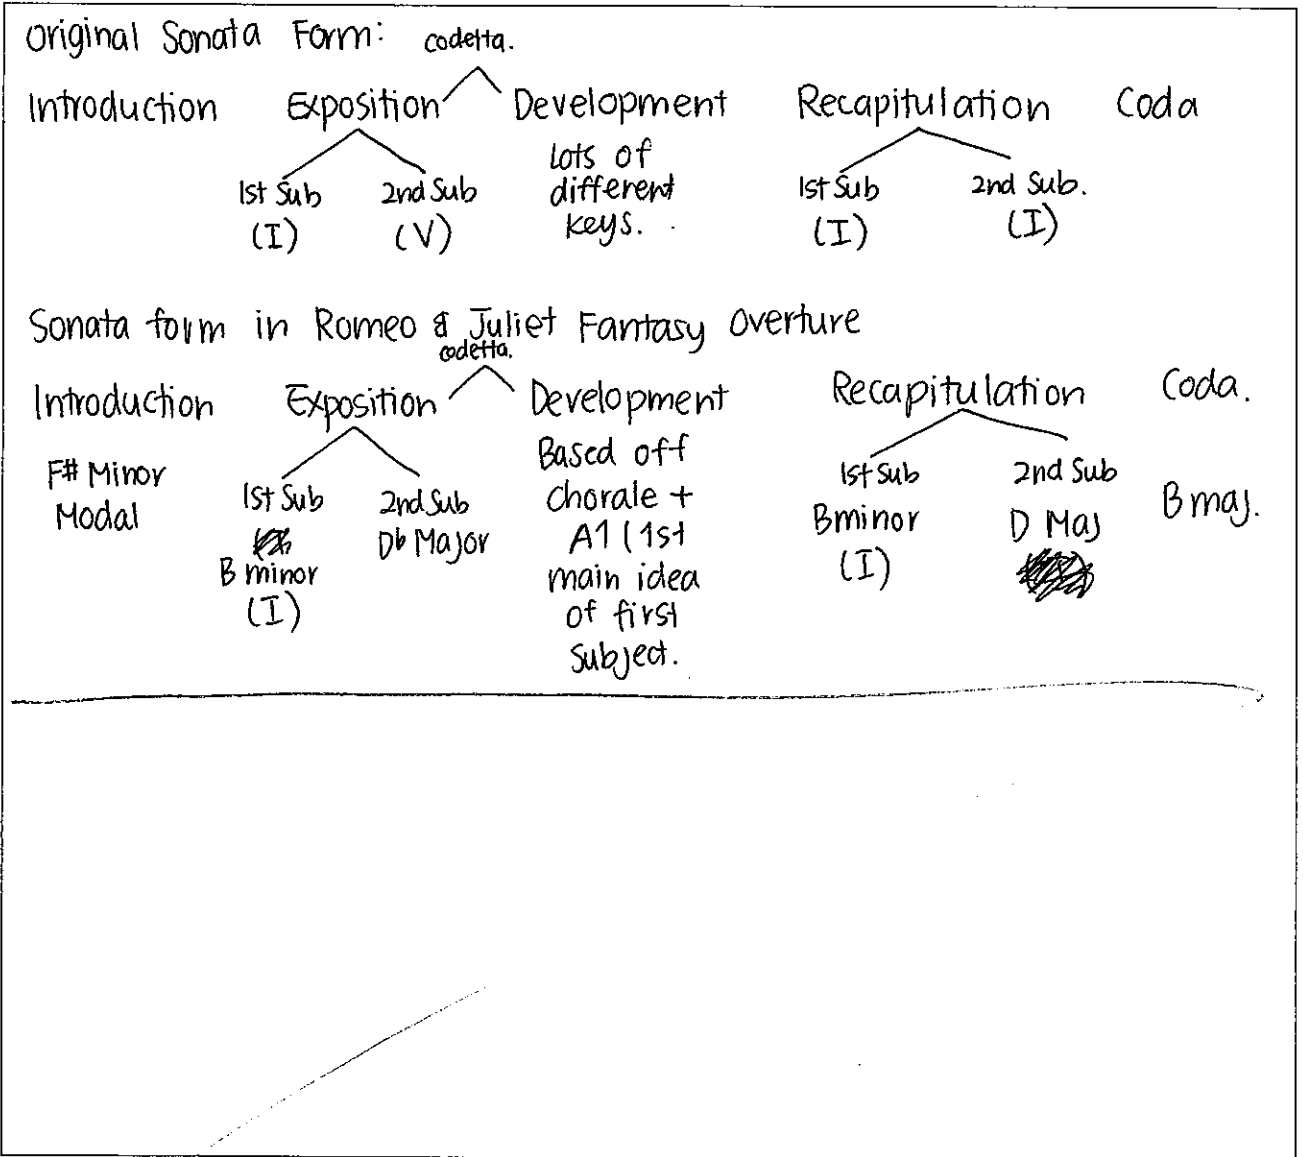 Original Sonata Form: codetta.
Introduction Exposition Development Recapitulation Coda
1st Sub 2nd Sub Lots of different keys. 1st Sub 2nd Sub.
(I) (V) (I) (I)
Sonata form in Romeo & Juliet Fantasy Overture
codetta.
Introduction Exposition Development Recapitulation Coda.
F# Minor
Modal
1st Sub
B minor
(I)
2nd Sub
Db Major
Based off
Chorale +
A1 (1st
main idea
of first
subject.
1st Sub
B minor
(I)
2nd Sub
D Maj
B maj.